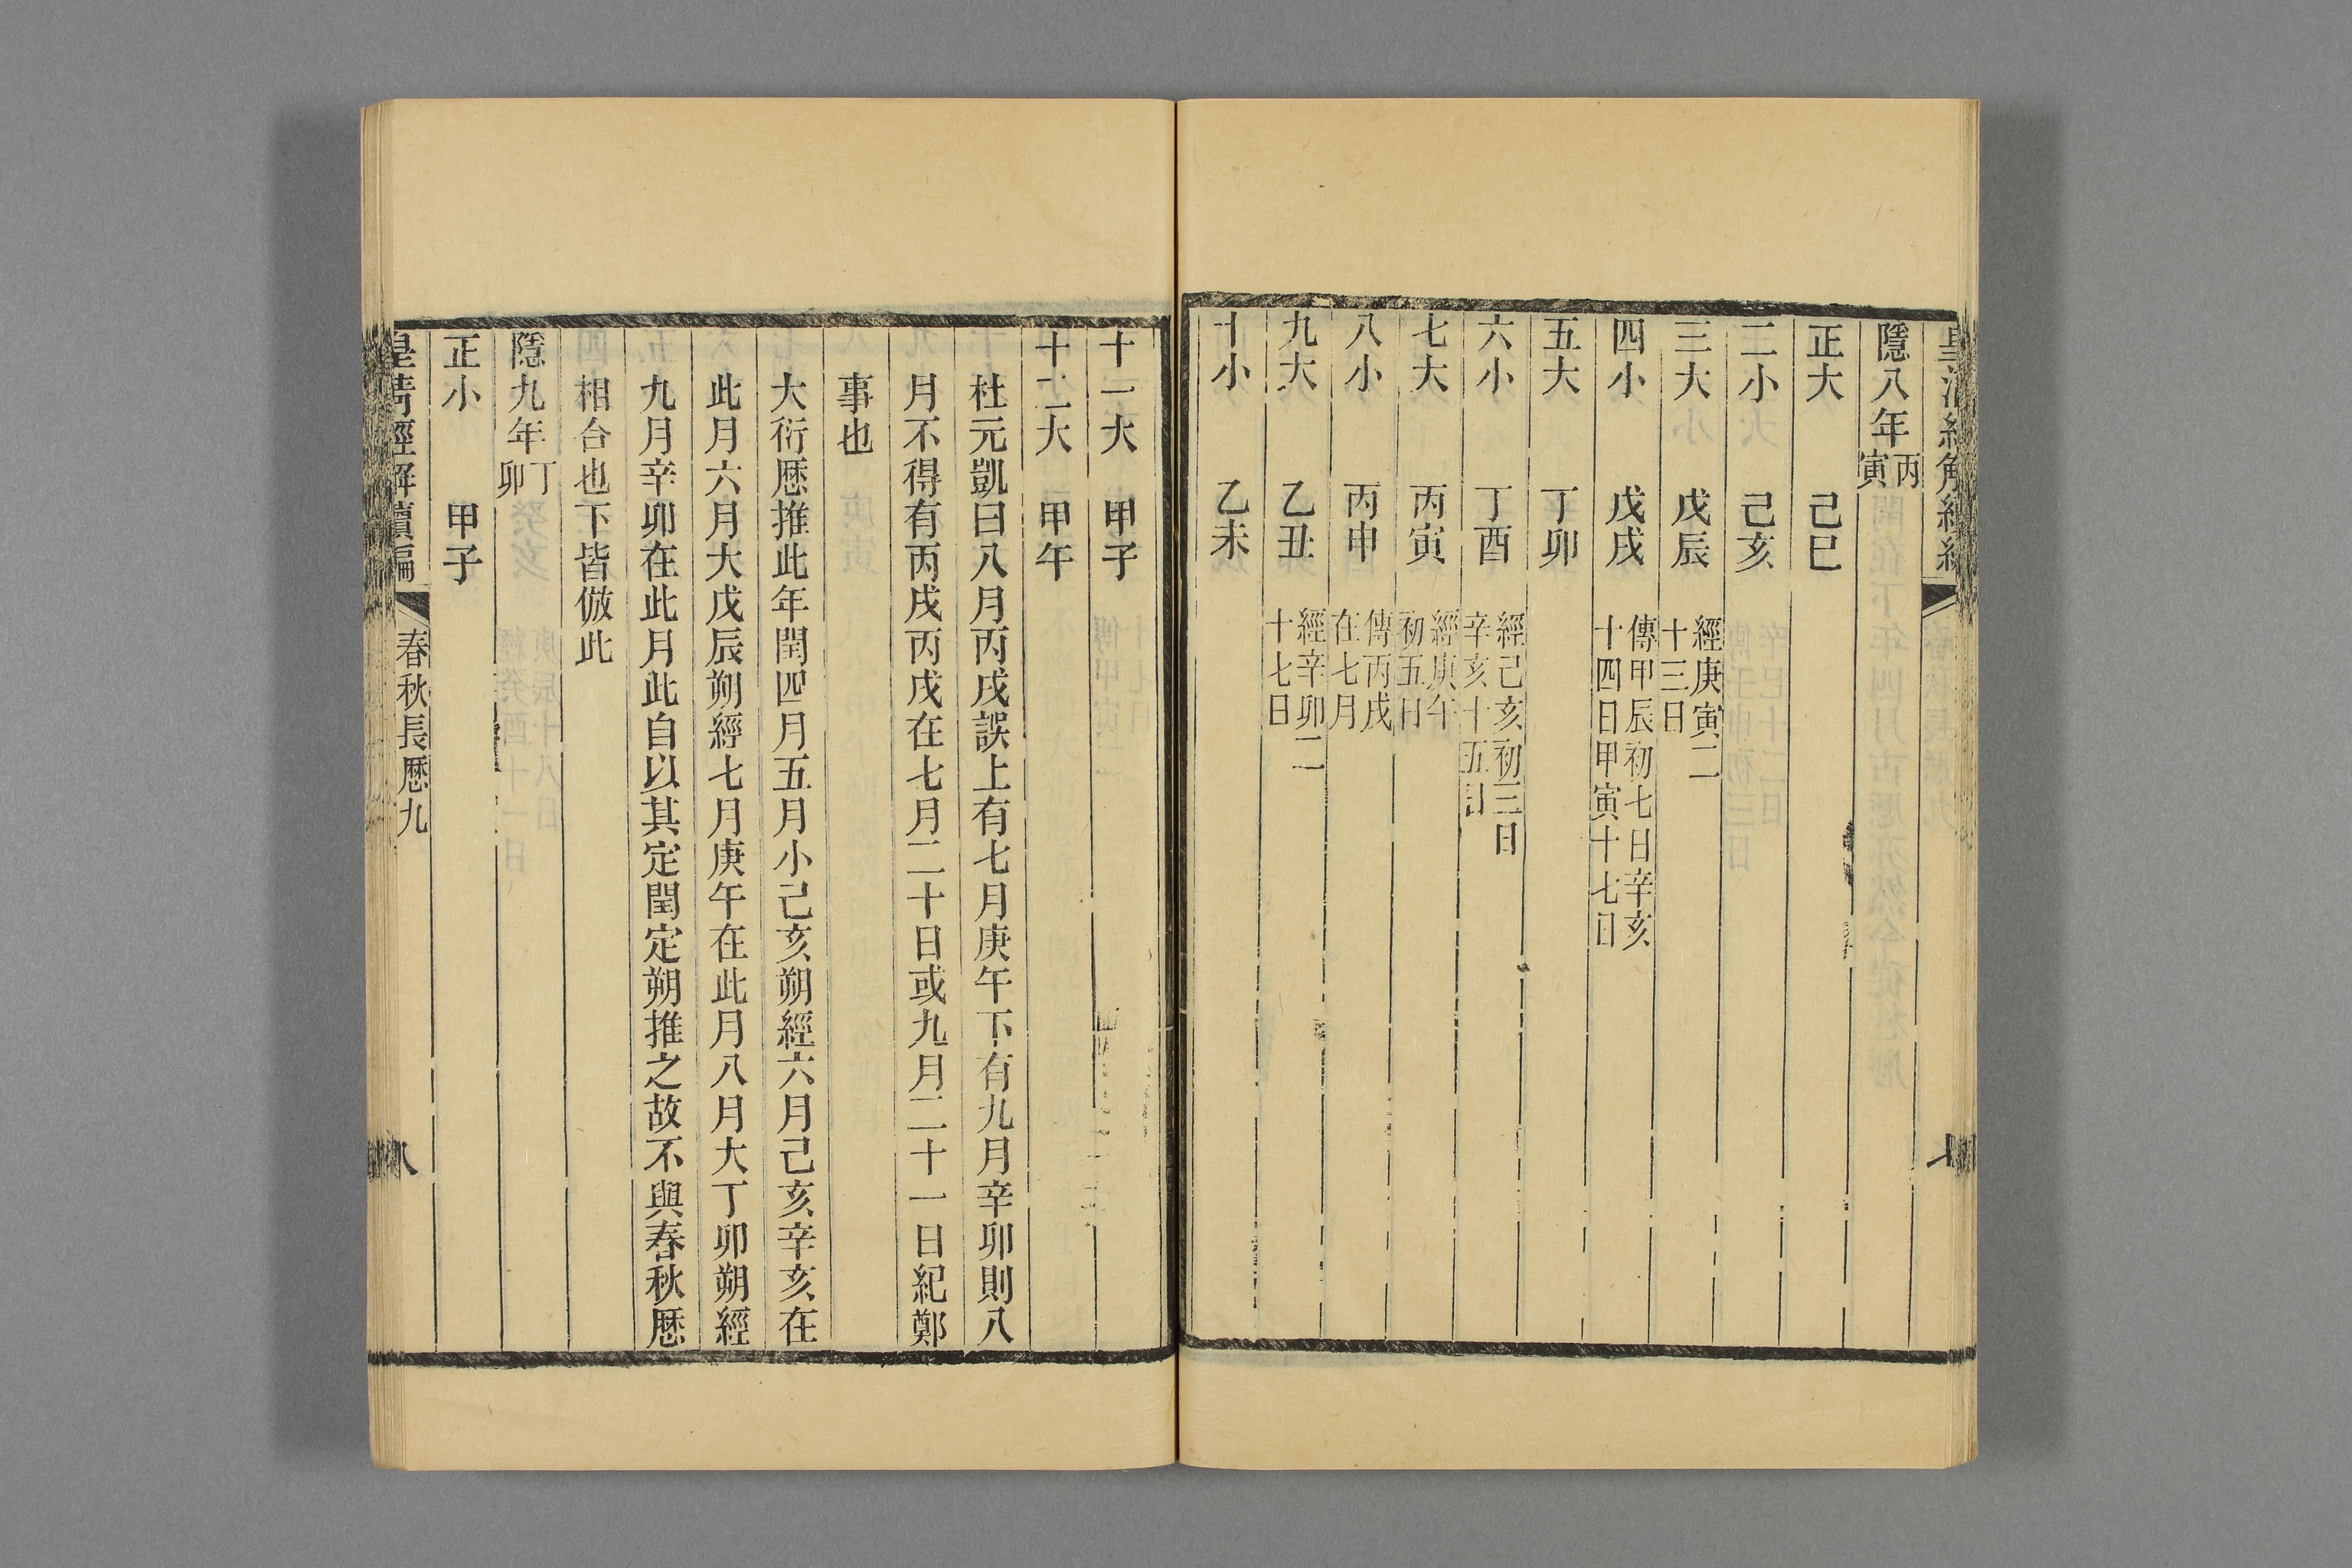 隱八年丙寅
正大　己巳
二小　己亥
三大　戊辰　經庚寅二十三日
四小　戊戌　傳甲辰初七日辛亥十四日甲寅十七日
五大　丁卯
六小　丁酉　經己亥初三日辛亥十五日
七大　丙寅　經庚午初五日
八小　丙申　傳丙戌在七月
九大　乙丑　經辛卯二十七日
十小　乙未
十一大　甲子
十二大　甲午
杜元凱曰八月丙戌誤上有七月庚午下有九月辛卯則八
月不得有丙戌丙戌在七月二十日或九月二十一日紀鄭
事也
大衍厯推此年閏四月五月小己亥朔經六月己亥辛亥在
此月六月大戊辰朔經七月庚午在此月八月大丁卯朔經
九月辛卯在此月此自以其定閏定朔推之故不與春秋厯
相合也下皆倣此
隱九年丁卯
正小　甲子
皇清經解續編　春秋長厯九　八